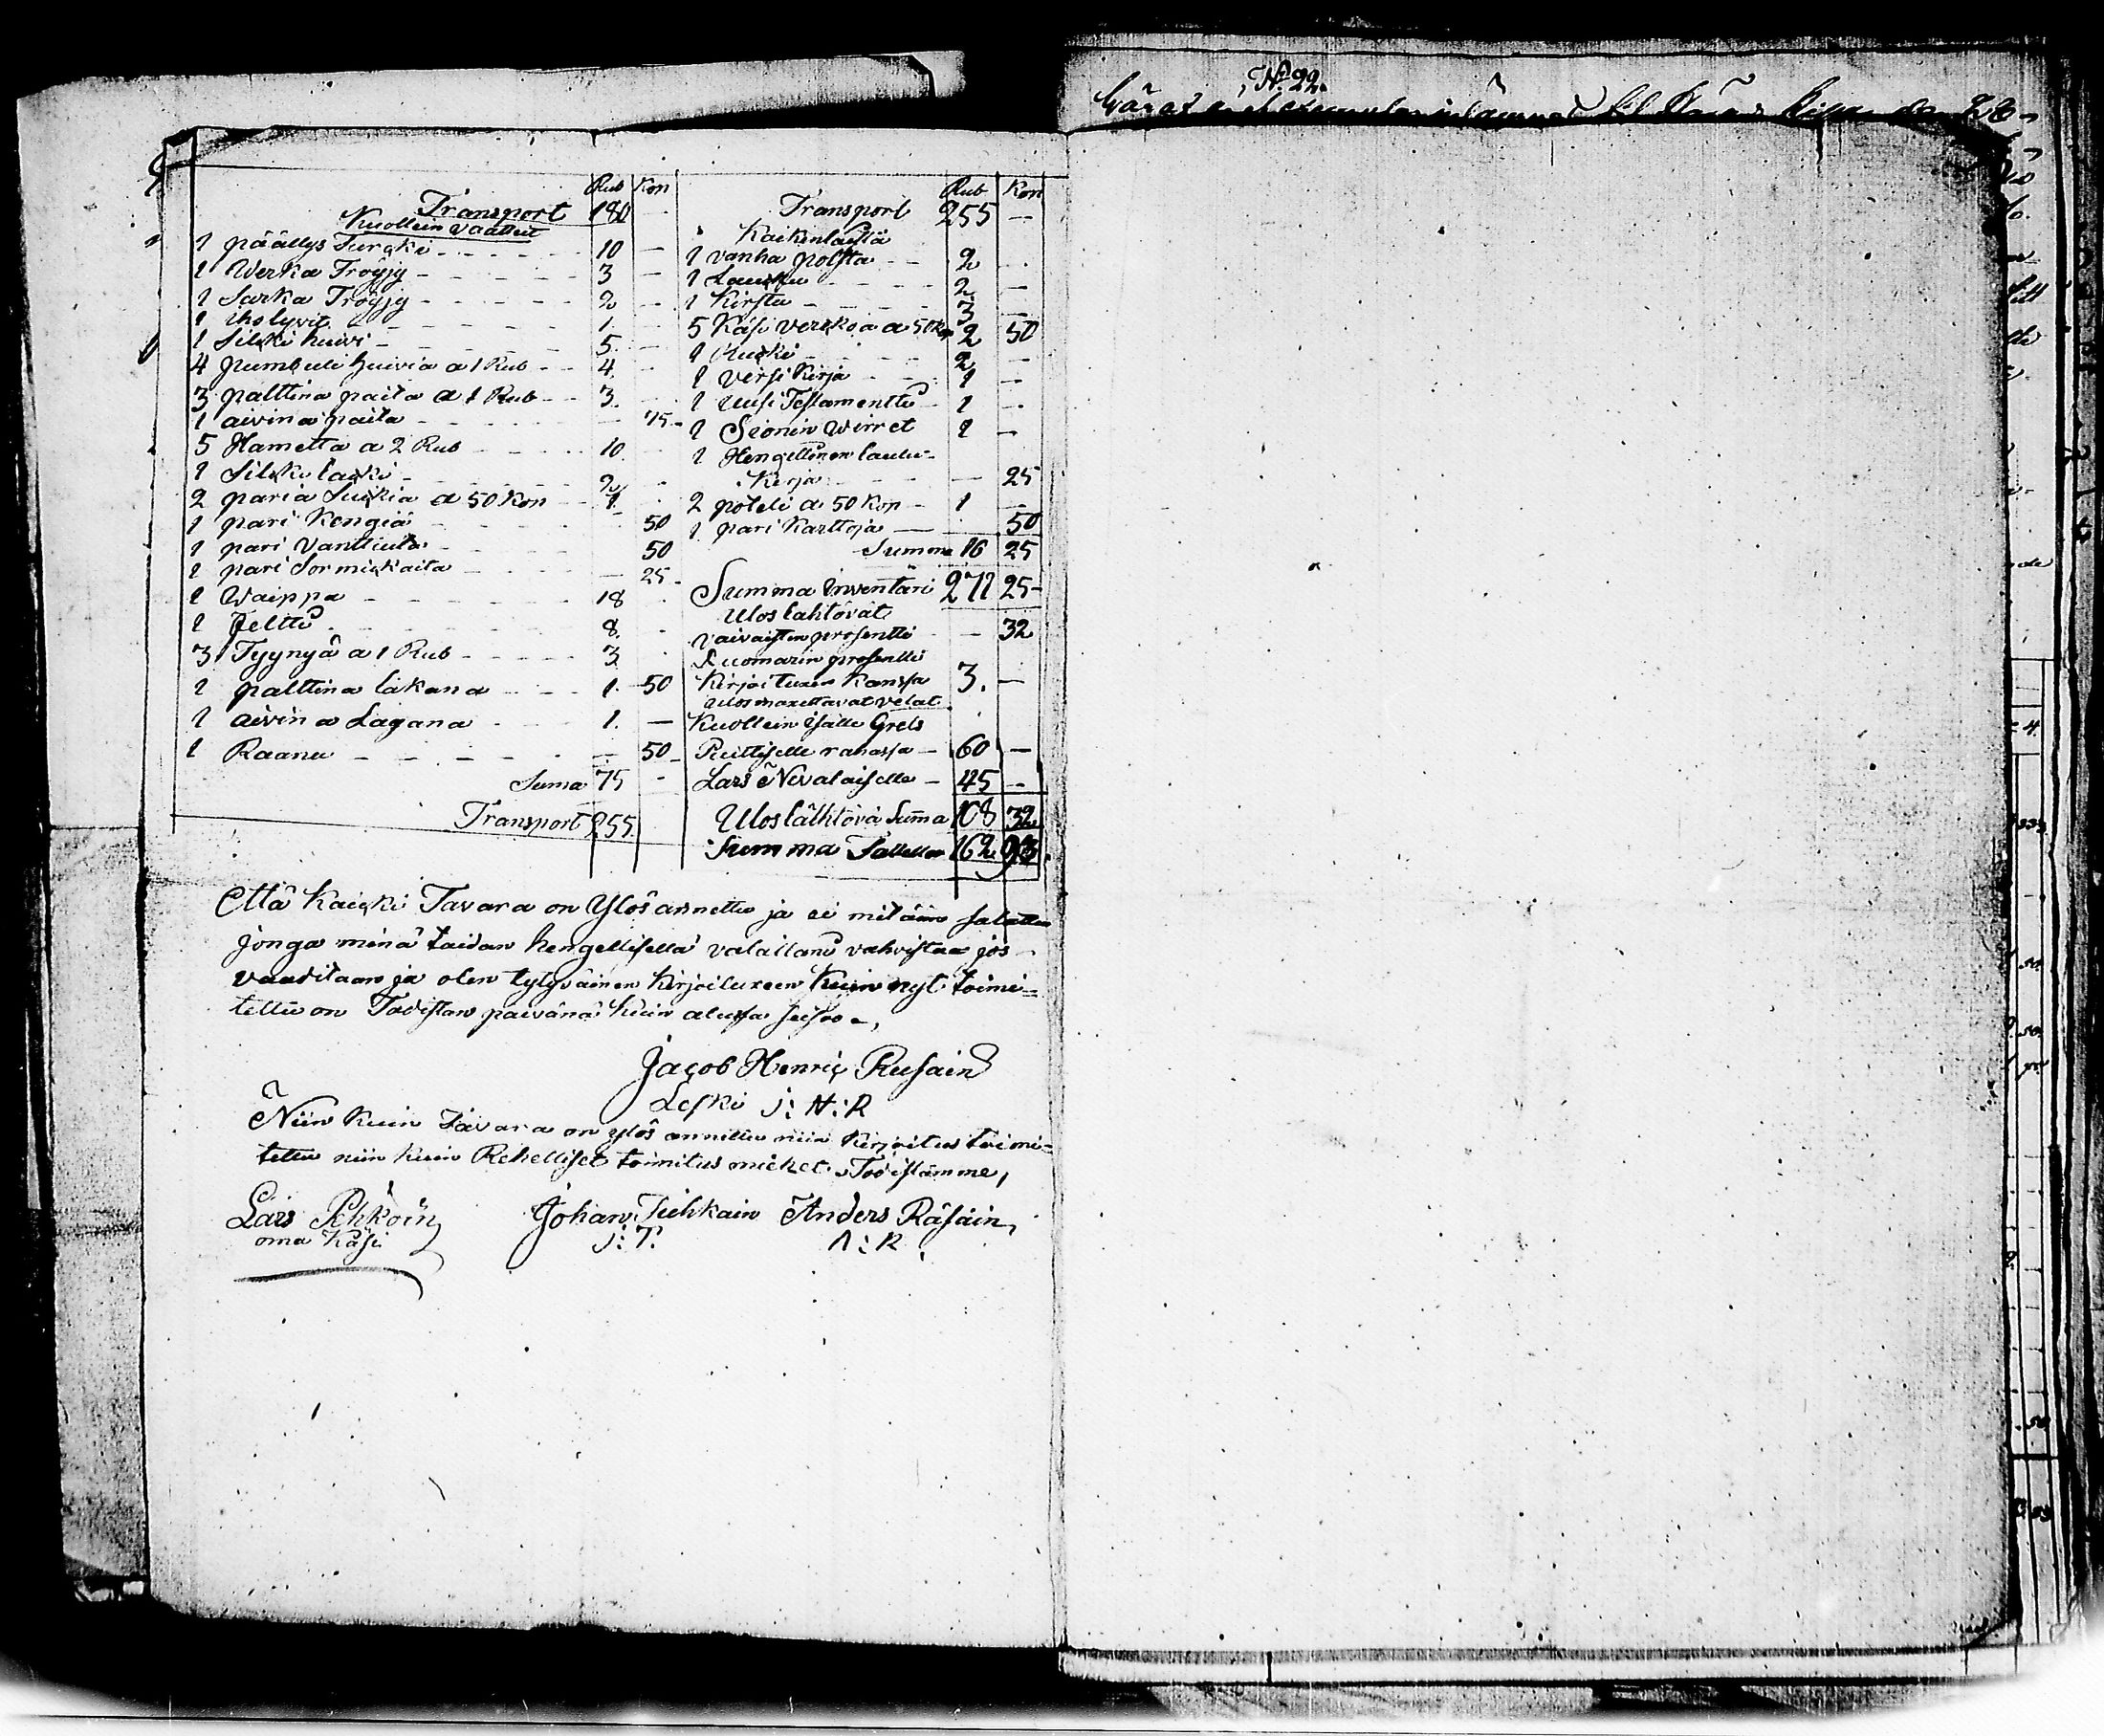 Rub Kop
Transport 180 —
Kuollein vaatteit
1 päällys Turcki 10 —
1 Verka Tröyjy 3 —
1 Sarka Tröyjy 2 —
1 iholyvit 1.
1 Silcki huivi 5.
4 pumbuli huivia a 1 Rub 4.
3 palttina paita a 1 Rub 3.
1 aivina paita — 75
5 Hametta a 2 Rub 10.
1 Silcki lacki 2
2 paria Suckia a 50 Kop 1.
1 pari Kengiä 50
1 pari Vanttuita 50
1 pari Sormickaita — 25
1 Vaippa 18
1 Feltti 8.
3 Tyynyä a 1 Rub 3
1 palttina lakana 1. 50
1 aivina Lagana 1. —
1 Raanu — 50
Suma 75 -
Transport 255.
Rub Kop
Transport 255 —
Kaikenlaista
1 vanha polsta 2
1 Laucku 2 —
1 Kirstu 3 —
5 Käsi verckoa a 50 K 2 50
1 Kucki 2 —
1 Versi Kirja 1 —
1 Uusi Testamentti 1 —
1 Sionin Wirret 1 —
1 Hengellinen laulu-
Kirja — 25
2 poteli a 50 Kop 1 —
1 pari Karttoja 50
Summa 16 25
Summa Inventäri 271 25
Ulos lähtövät
Vaivaisten prosentti — 32
Tuomarin prosentti
Kirjoituxen Kanssa 3. —
Ulos maxettavat velat
Kuollein isälle Grels
Reittiselle rahassa 60 —
Lars Nevalaiselle 45 —
Ulos lähtövä Suma 108 32
Summa Tallella 162 93
Että Kaicki Tavara on Ylös annettu ja ei mitään salattu
jonga minä taidan hengellisellä valallani vahvistaa jos
vaaditaan ja olen tytyväinen Kirjoituxeen Kuin nyt toimi=
tettu on Todistan päivänä Kuin alussa seisoo,
Jacob Henric Rusain
Leski J: H: R
Niin Kuin Tavara on ylös annettu niin Kirjoitus toimi=
tettu niin kuin Rehelliset toimitus miehet Todistamme,
Lars Pehkoin Johan Tiehkain Anders Räsäin,
oma Käsi J: T. A: R
N: 22.